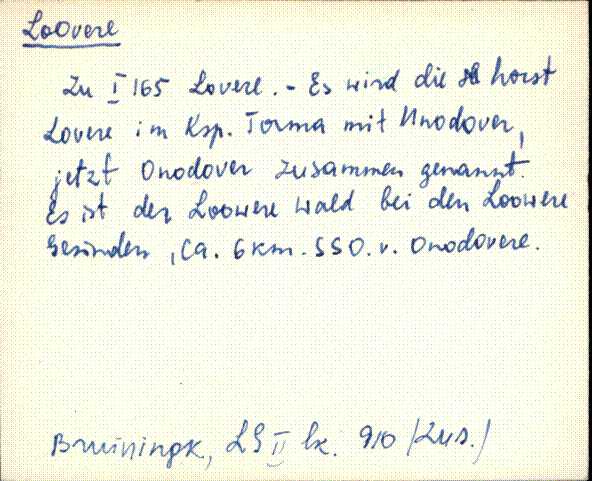 Loovere
Zu I 165 Lovere. - Es wird die horst
Lovere im Ksp. Torma mit Unodover,
jetzt Onodover zusammen genannt.
Es ist der Loowere wald bei den Loowere
Gesinden, ca. 6 km. SSO. v. Onodovere.
Bruiningk, LG II lk. 910 (Zus.)